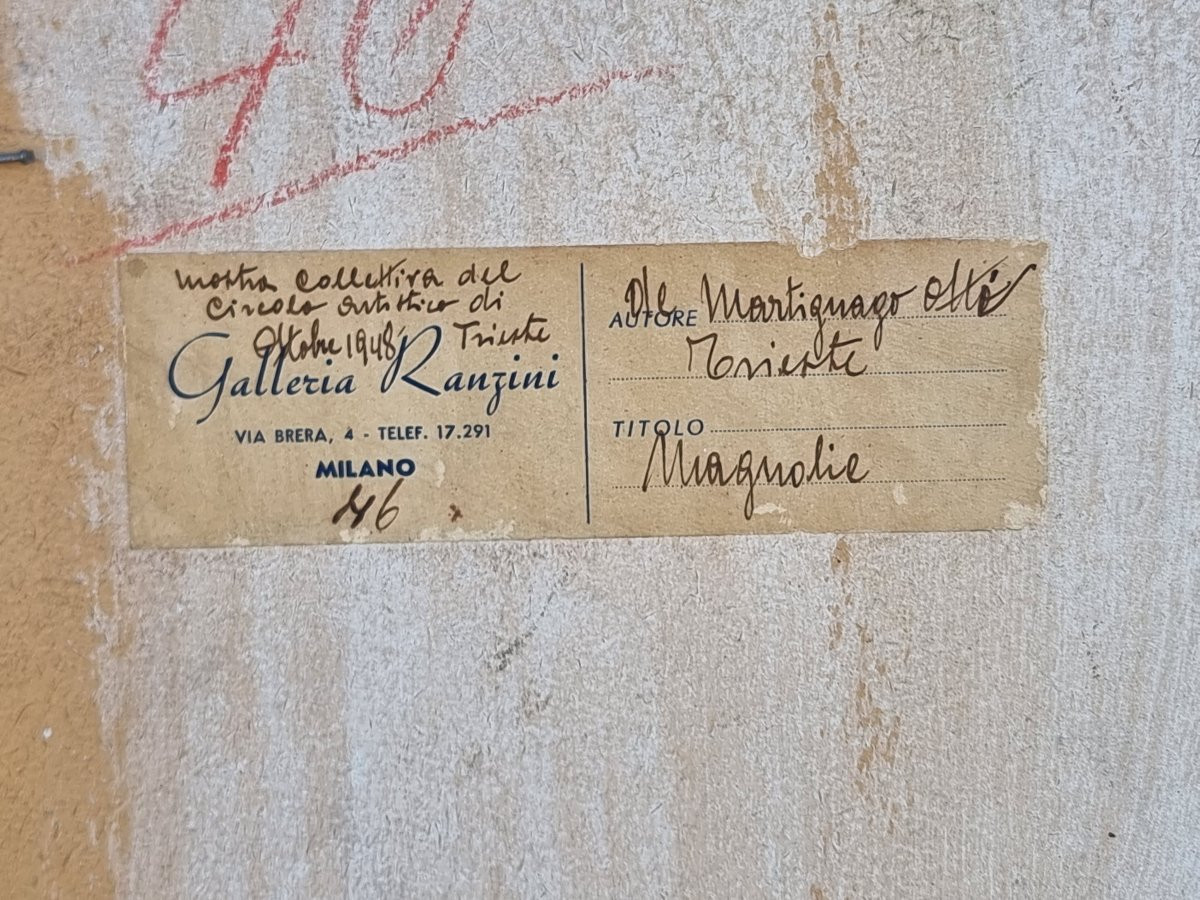 40
Mostra Collettiva del
Circolo artistico di
Ottobre 1948 Trieste
Galleria Ranzini
VIA BRERA, 4 - TELEF. 17.291
MILANO
46
AUTORE De Martignago
Trieste
TITOLO
Magnolie